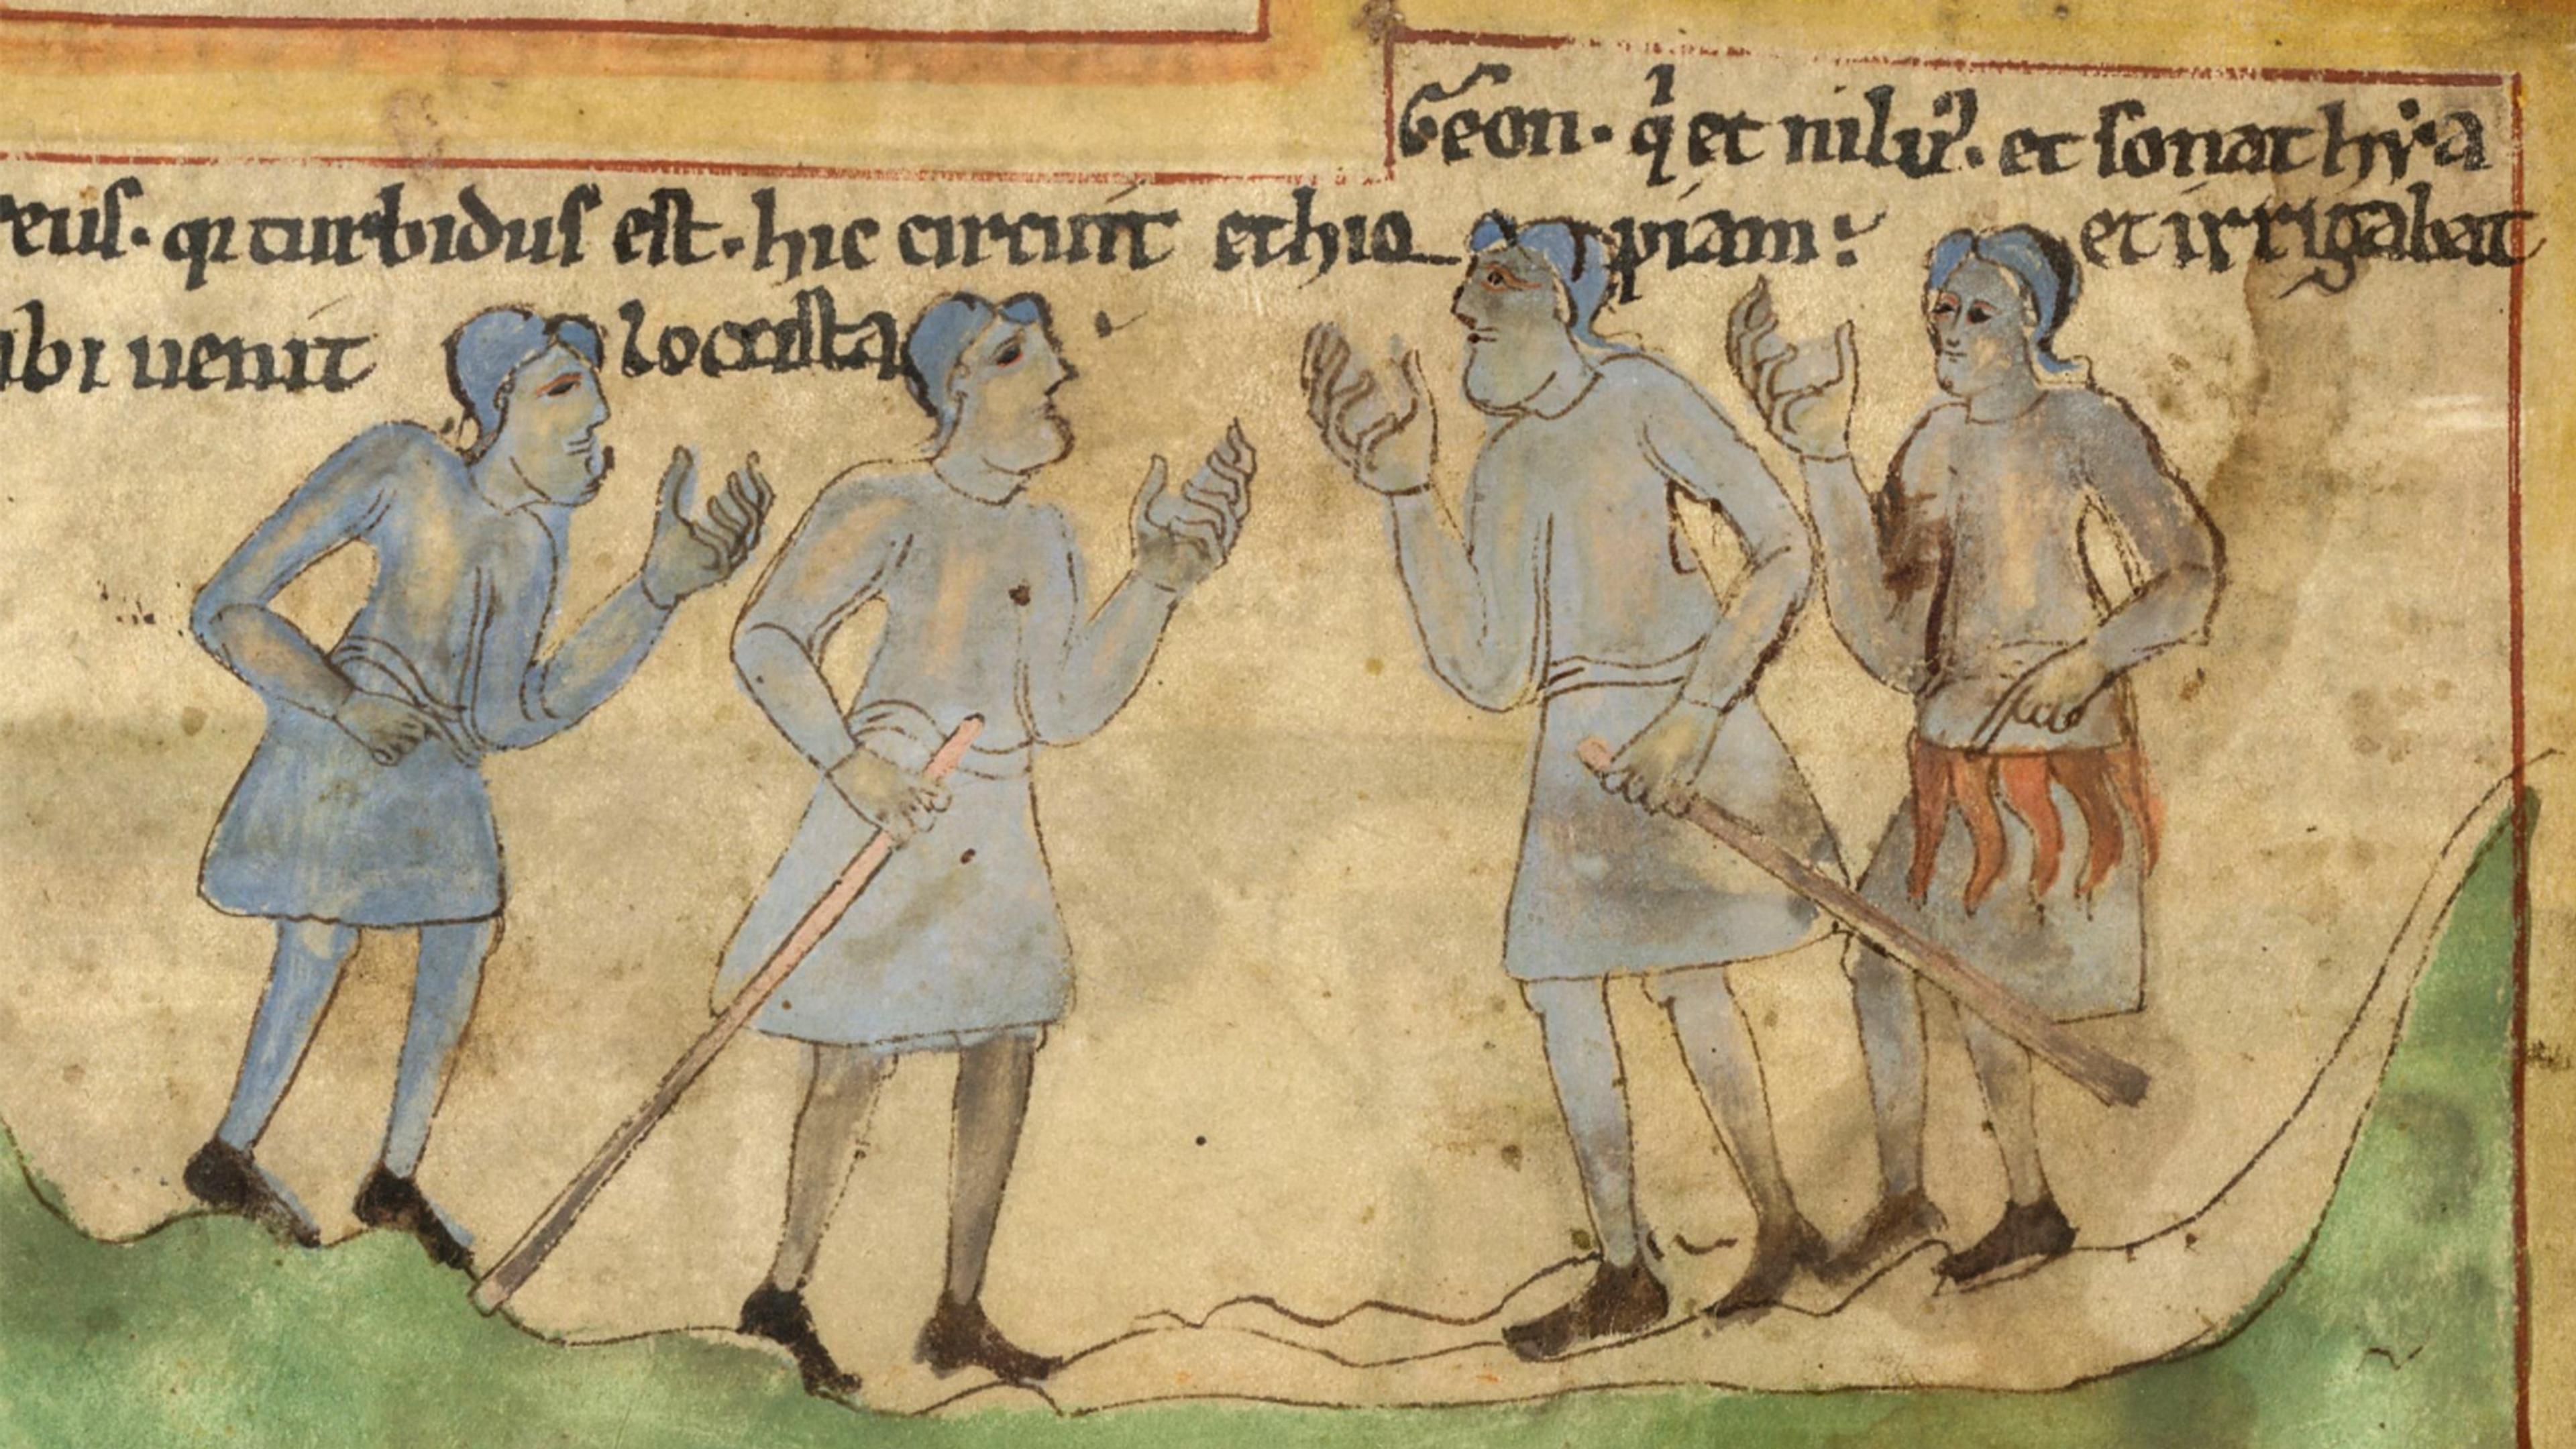 Geon· qͥ et nilꝰ· et sonat
eus· qi turbidus est· hic circuit ethio piam: et irrigabat
ubi uenit locusta